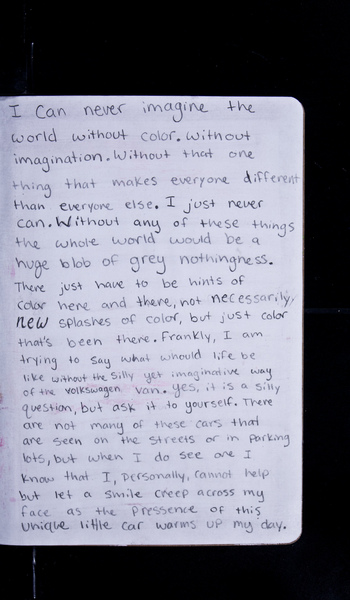 I can never imagine the
world without color. Without
imagination. Without that one
thing that makes everyone different
than everyone else. I just never
can. Without any of these things
the whole world would be a
huge blob of grey nothingness.
There just have to be hints of
color here and there, not necessarily,
new splashes of color, but just color
that's been there. Frankly, I am
trying to say what whould life be
like without the silly yet imaginative way
of the volkswagen van. yes, it is a silly
question, but ask it to yourself. There
are not many of these cars that
are seen on the streets or in parking
lots, but when I do see one I
know that I, personally, cannot help
but let a smile creep across my
face as the pressence of this
unique little car warms up my day.